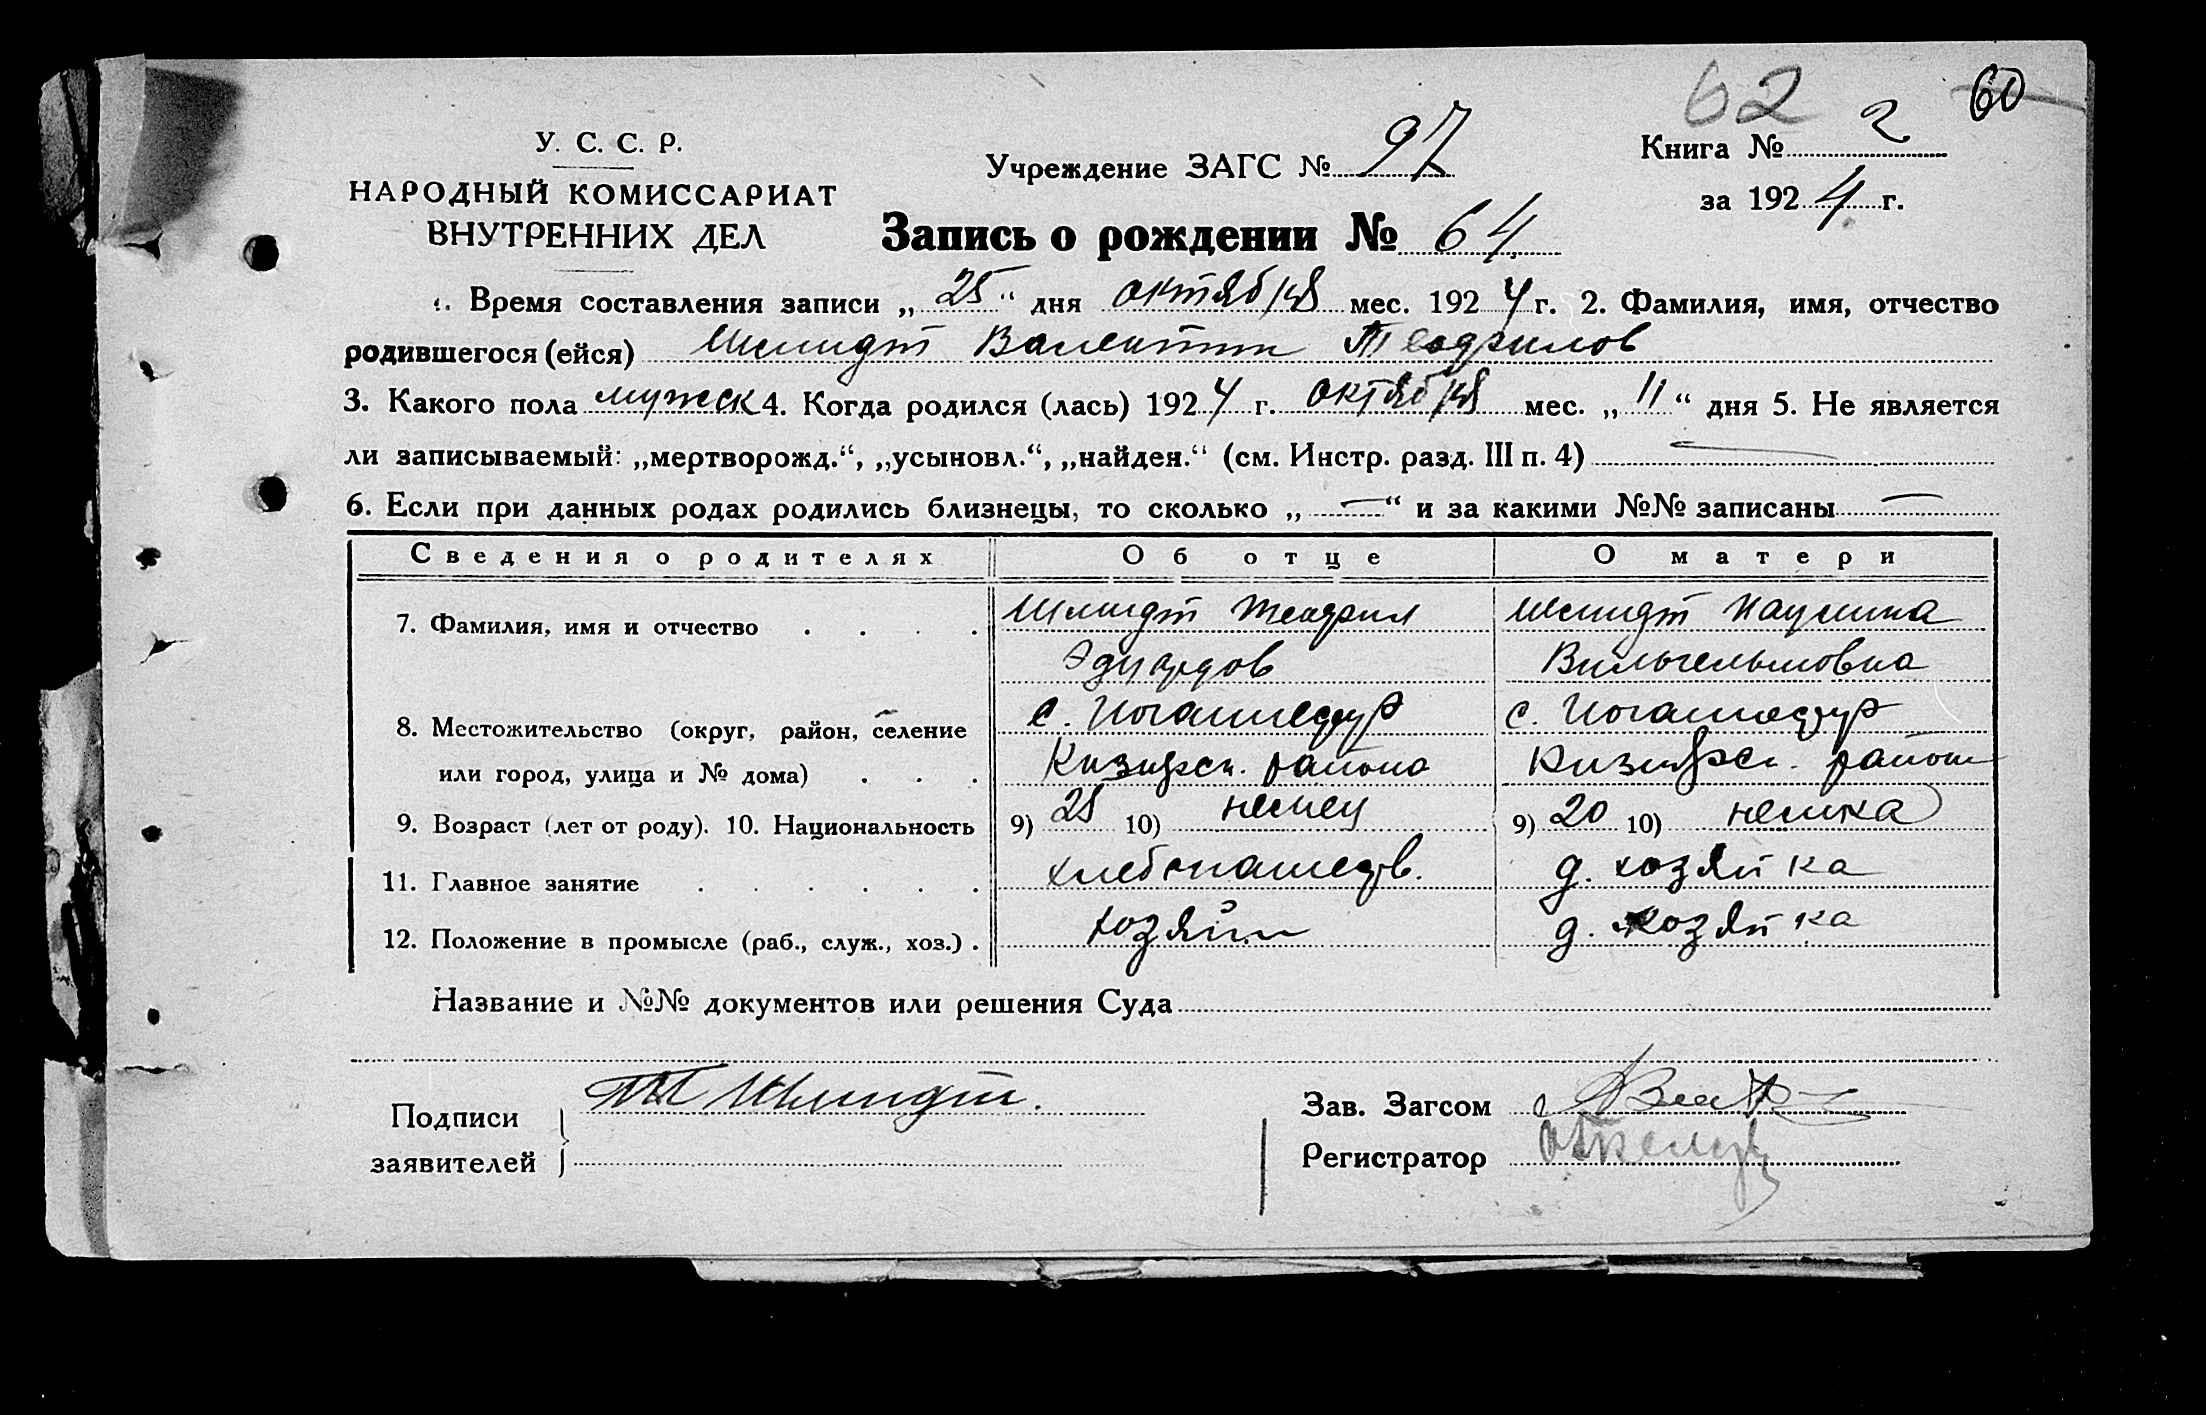 62 60
У. С. С. Р.
НАРОДНЫЙ КОМИССАРИАТ
ВНУТРЕННИХ ДЕЛ
Учреждение ЗАГС № 97
Книга № 2
за 1924 г.
Запись о рождении № 64
1. Время составления записи „25“ дня октября мес. 1924 г. 2. Фамилия, имя, отчество
родившегося (ейся) Шмидт Валентин Теофилов
3. Какого пола мужск 4. Когда родился (лась) 1924 г. октября мес. „11“ дня 5. Не является
ли записываемый: „мертворожд.“, „усыновл.“, „найден.“ (см. Инстр. разд. III п. 4) —
6. Если при данных родах родились близнецы, то сколько „—“ и за какими №№ записаны —
Сведения о родителях Об отце О матери
7. Фамилия, имя и отчество Шмидт Теофил Шмидт Паулина
Эдуардов Вильгельмовна
8. Местожительство (округ, район, селение с. Иоганнесдорф с. Иоганнесдорф
или город, улица и № дома) района района
9. Возраст (лет от роду). 10. Национальность 9) 25 10) немец 9) 20 10) немка
11. Главное занятие хлебопашеств. д. хозяйка
12. Положение в промысле (раб., служ., хоз.) хозяин д. хозяйка
Название и №№ документов или решения Суда
Подписи
заявителей
Т Шмидт.
Зав. Загсом
Регистратор